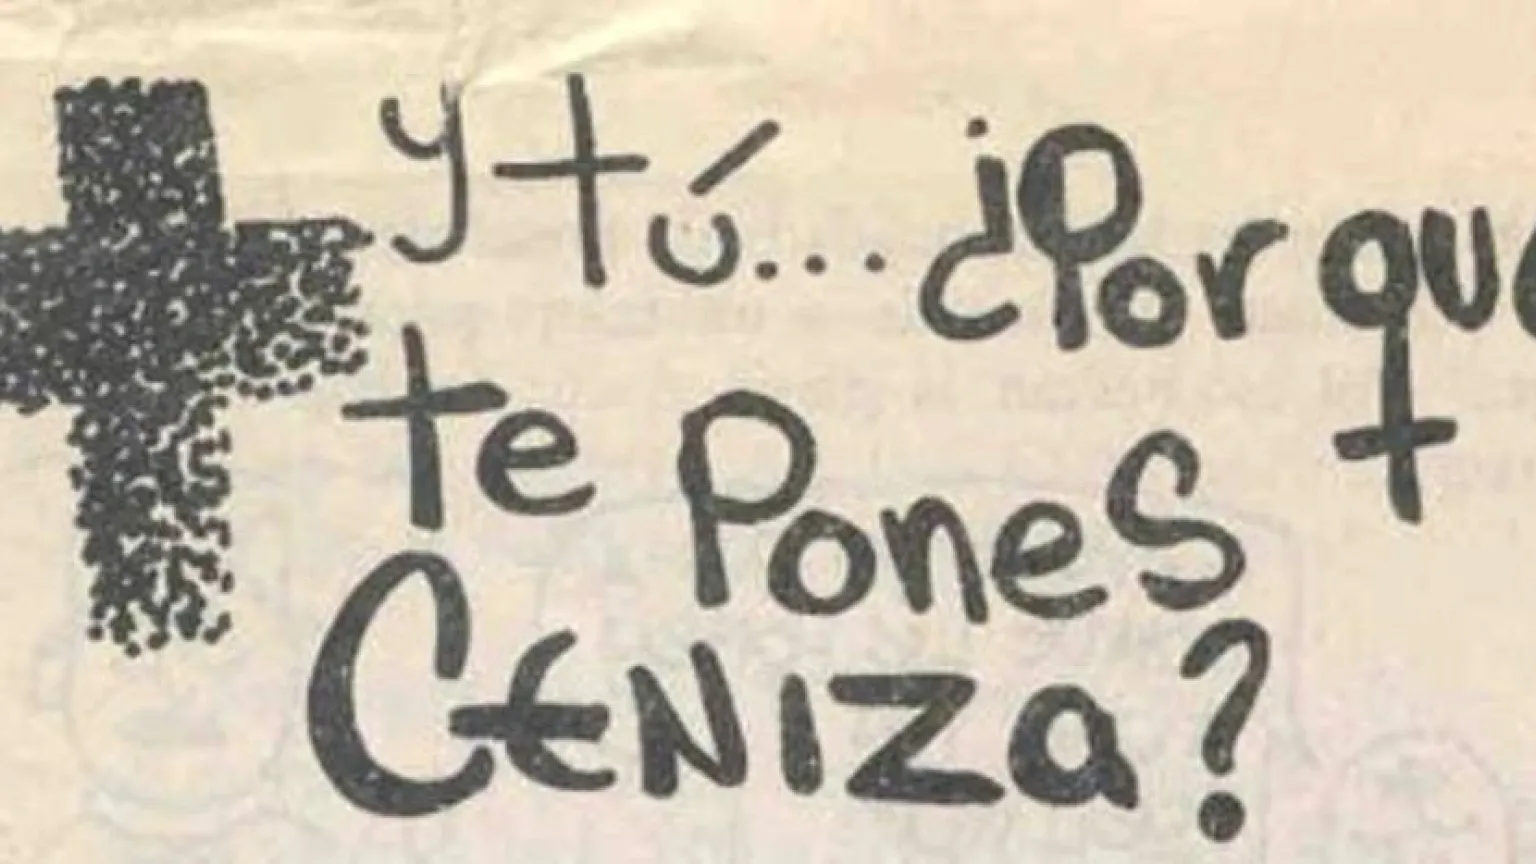 y tú... ¿Por que
te Pones
CENIZa?